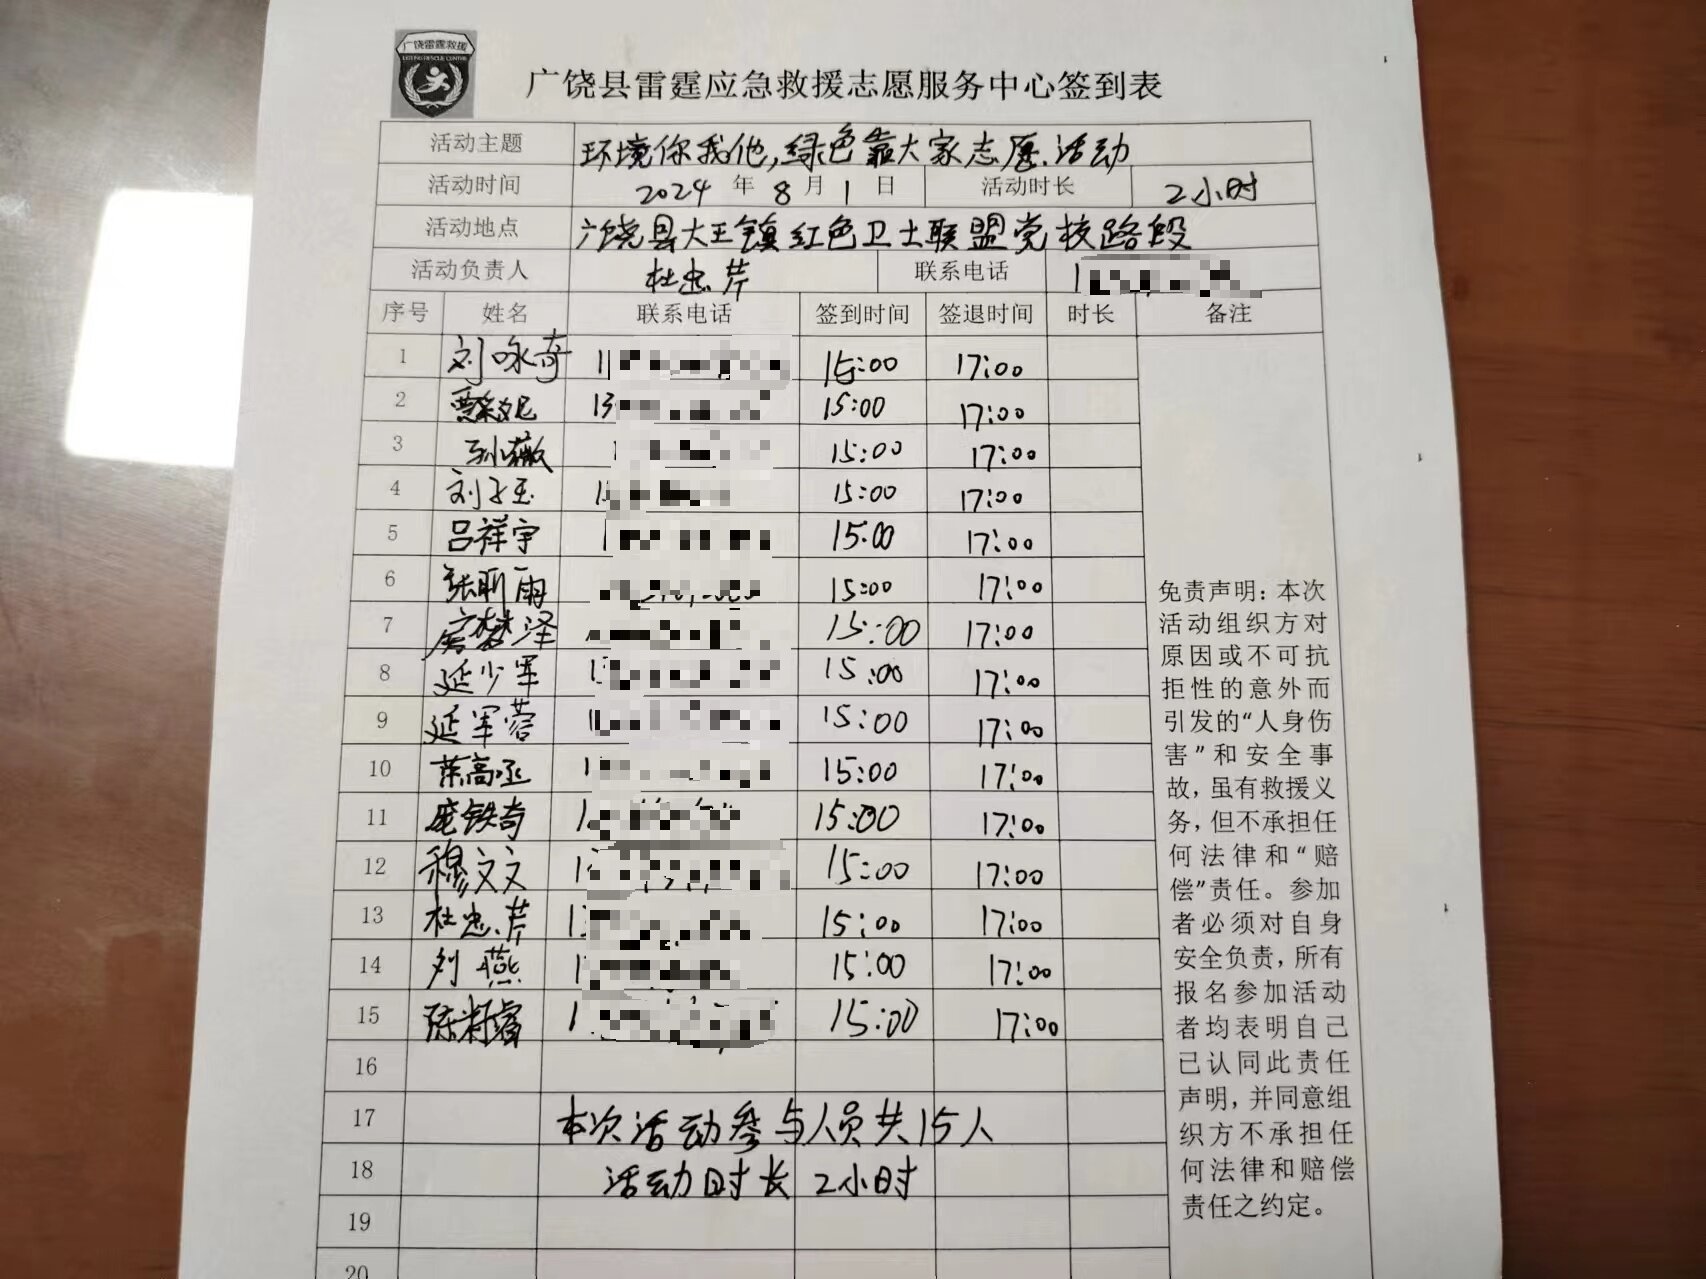 广饶雷霆救援
广饶县雷霆应急救援志愿服务中心签到表
活动主题 环境你我他,绿色靠大家志愿活动
活动时间 2024 年 8 月 1 日 活动时长 2小时
活动地点 广饶县大王镇红色卫士联盟党校路段
活动负责人 杜忠芹 联系电话 1
序号 姓名 联系电话 签到时间 签退时间 时长 备注
1 刘咏奇 1 15:00 17:00
2 13 15:00 17:00
3 孙薇 1 15:00 17:00
4 刘子玉 1 15:00 17:00
5 吕祥宇 1 15:00 17:00
6 张昕雨 15:00 17:00
7 房梦泽 15:00 17:00
8 延少军 1 15:00 17:00
9 延军蓉 1 15:00 17:00
10 高丞 1 15:00 17:00
11 庞铁奇 1 15:00 17:00
12 穆文文 1 15:00 17:00
13 杜忠芹 13 15:00 17:00
14 刘燕 1 15:00 17:00
15 陈睿 1 15:00 17:00
16
17 本次活动参与人员共15人
18 活动时长 2小时
19
20
免责声明：本次
活动组织方对
原因或不可抗
拒性的意外而
引发的“人身伤
害”和安全事
故，虽有救援义
务，但不承担任
何法律和“赔
偿”责任。参加
者必须对自身
安全负责，所有
报名参加活动
者均表明自己
已认同此责任
声明，并同意组
织方不承担任
何法律和赔偿
责任之约定。